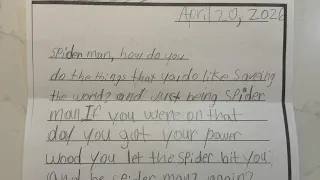 April 20, 2026
spider man, how do you
do the things that you do like saveing
the world? and just being spider
man. If you were on that
day you got your power
wood you let the spider bit you
And be spider man? again?